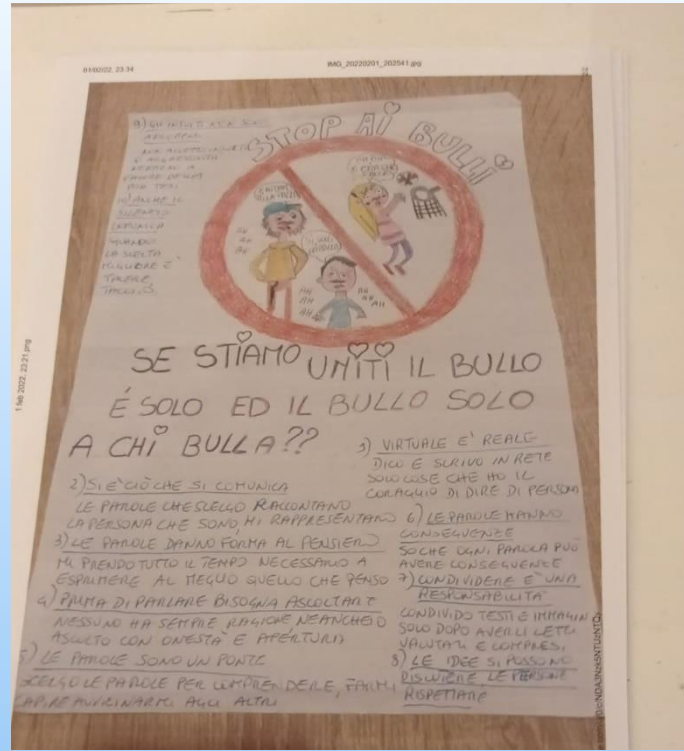 01/02/22, 23:34
IMG_20220201_202541.jpg
1 feb 2022, 23:21.png
STOP AI BULLI
9) GLI INSULTI NON SONO
ARGOMENTI
NON ACCETTO INSULTI
E AGGRESSIVITÀ
NEMMENO A
FAVORE DELLA
MIA TESI
10) ANCHE IL
SILENZIO
COMUNICA
QUANDO
LA SCELTA
MIGLIORE È
TACERE
TACCIO
AH
AH
AH
AH
AH
AH AH
SE STIAMO UNITI IL BULLO
É SOLO ED IL BULLO SOLO
A CHI BULLA??
1) VIRTUALE E' REALE
DICO E SCRIVO IN RETE
SOLO COSE CHE HO IL
CORAGGIO DI DIRE DI PERSONA
2) SI E' CIÒ CHE SI COMUNICA
LE PAROLE CHE SCELGO RACCONTANO
LA PERSONA CHE SONO, MI RAPPRESENTANO
3) LE PAROLE DANNO FORMA AL PENSIERO
MI PRENDO TUTTO IL TEMPO NECESSARIO A
ESPRIMERE AL MEGLIO QUELLO CHE PENSO
4) PRIMA DI PARLARE BISOGNA ASCOLTARE
NESSUNO HA SEMPRE RAGIONE NEANCHE IO
ASCOLTO CON ONESTÀ E APERTURA
5) LE PAROLE SONO UN PONTE
SCELGO LE PAROLE PER COMPRENDERE, FARMI
CAPIRE AVVICINARMI AGLI ALTRI
6) LE PAROLE HANNO
CONSEGUENZE
SO CHE OGNI PAROLA PUÒ
AVERE CONSEGUENZE
7) CONDIVIDERE E' UNA
RESPONSABILITÀ
CONDIVIDO TESTI E IMMAGINI
SOLO DOPO AVERLI LETTI
VALUTATI E COMPRESI
8) LE IDEE SI POSSONO
DISCUTERE LE PERSONE
RISPETTARE